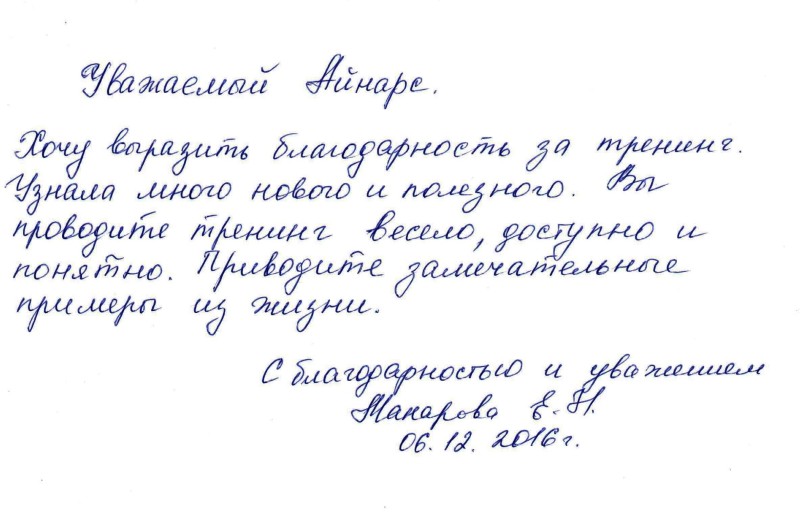 Уважаемый Айнарс.
Хочу выразить благодарность за тренинг.
Узнала много нового и полезного. Вы
проводите тренинг весело, доступно и
понятно. Приводите замечательные
примеры из жизни.
С благодарностью и уважением
Макарова Е. Н.
06.12.2016г.